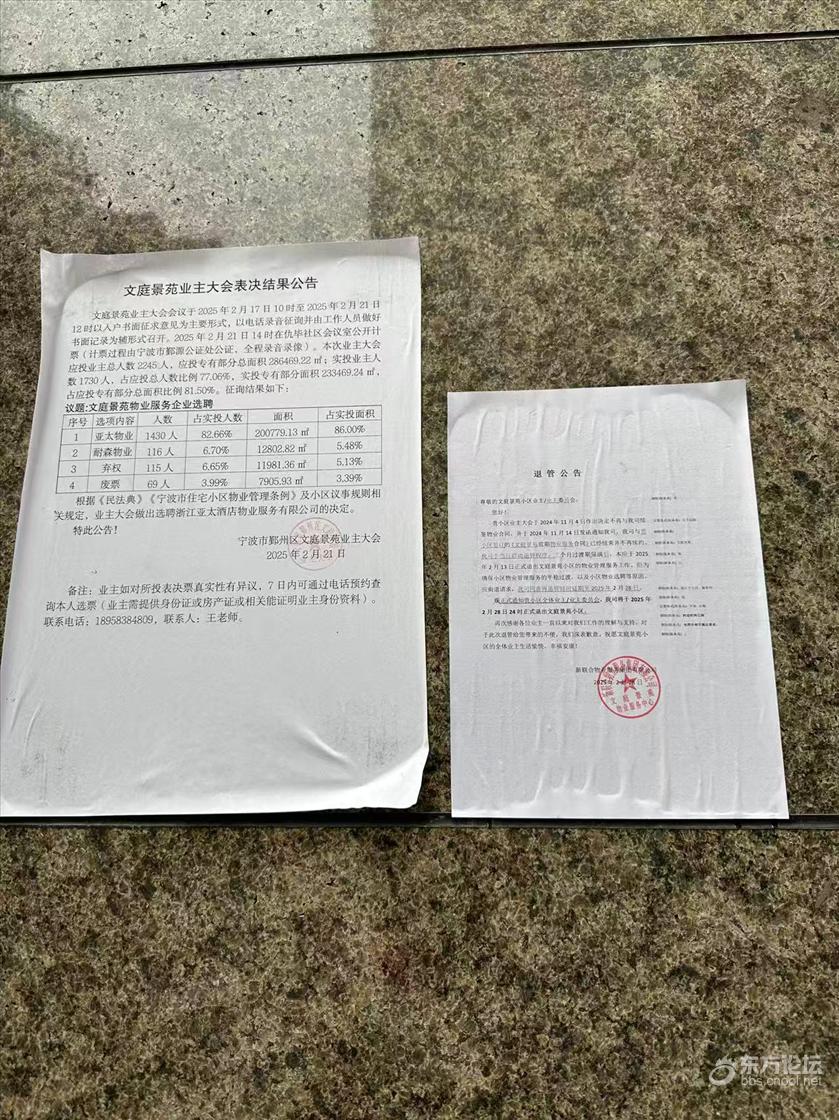 文庭景苑业主大会表决结果公告
文庭景苑业主大会会议于2025年2月17日10时至2025年2月21日
12时以入户书面征求意见为主要形式，以电话录音征询并由工作人员做好
书面记录为辅形式召开。2025年2月21日14时在仇毕社区会议室公开计
票（计票过程由宁波市鄞源公证处公证，全程录音录像）。本次业主大会
应投业主总人数2245人，应投专有部分总面积286469.22㎡；实投业主人
数1730人，占应投总人数比例77.06%，实投专有部分面积233469.24㎡，
占应投专有部分总面积比例81.50%。征询结果如下：
议题:文庭景苑物业服务企业选聘
序号 选项内容 人数 占实投人数 面积 占实投面积
1 亚太物业 1430人 82.66% 200779.13㎡ 86.00%
2 耐森物业 116人 6.70% 12802.82㎡ 5.48%
3 弃权 115人 6.65% 11981.36㎡ 5.13%
4 废票 69人 3.99% 7905.93㎡ 3.39%
根据《民法典》《宁波市住宅小区物业管理条例》及小区议事规则相
关规定，业主大会做出选聘浙江亚太酒店物业服务有限公司的决定。
特此公告！
宁波市鄞州区文庭景苑业主大会
2025年2月21日
备注：业主如对所投表决票真实性有异议，7日内可通过电话预约查
询本人选票（业主需提供身份证或房产证或相关能证明业主身份资料）。
联系电话：18958384809，联系人：王老师。
退管公告
尊敬的文庭景苑小区业主/业主委员会：
您好！
贵小区业主大会于2024年11月4日作出决定不再与我司续
签物业合同，并于2024年11月14日发函通知我司，我司与贵
小区签订的《文庭景苑前期物业服务合同》已经结束并不再续约，
三个月过渡期保满，本应于2025
年2月13日正式退出文庭景苑小区的物业管理服务工作，但为
确保小区物业管理服务的平稳过渡，以及小区物业选聘等原因，
应街道请求，我司同意将退管时间延期至2025年2月28日。
现正式通知贵小区全体业主/业主委员会，我司将于2025年
2月28日24时正式退出文庭景苑小区。
再次感谢各位业主一直以来对我们工作的理解与支持。对
于此次退管给您带来的不便，我们深表歉意。祝愿文庭景苑小
区的全体业主生活愉快、幸福安康！
新联合物业
2025年2月
文庭景苑
物业服务中心
东方论坛
bbs.cnool.net